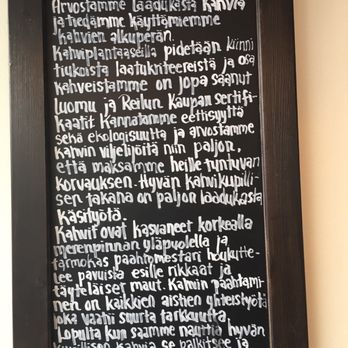 Arvostamme laadukasta kahvia
ja tiedämme käyttämiemme
kahvien alkuperän.
Kahviplantaaseilla pidetään kiinni
tiukoista laatukriteereistä ja osa
kahveistamme on jopa saanut
luomu ja Reilun Kaupan sertifi-
kaatit. Kannatamme eettisyyttä
sekä ekologisuutta ja arvostamme
kahvin viljelijöitä niin paljon,
että maksamme heille tuntuvan
korvauksen. Hyvän kahvikupilli-
sen takana on paljon laadukasta
käsityötä.
Kahvit ovat kasvaneet korkealla
merenpinnan yläpuolella ja
tarmokas paahtomestari houkutte-
lee pavuista esille rikkaat ja
täyteläiset maut. Kahvin paahtami-
nen on kaikkien aistien yhteistyötä
joka vaatii suurta tarkkuutta.
Lopulta kun saamme nauttia hyvän
kupillisen kahvia se palkitsee ja